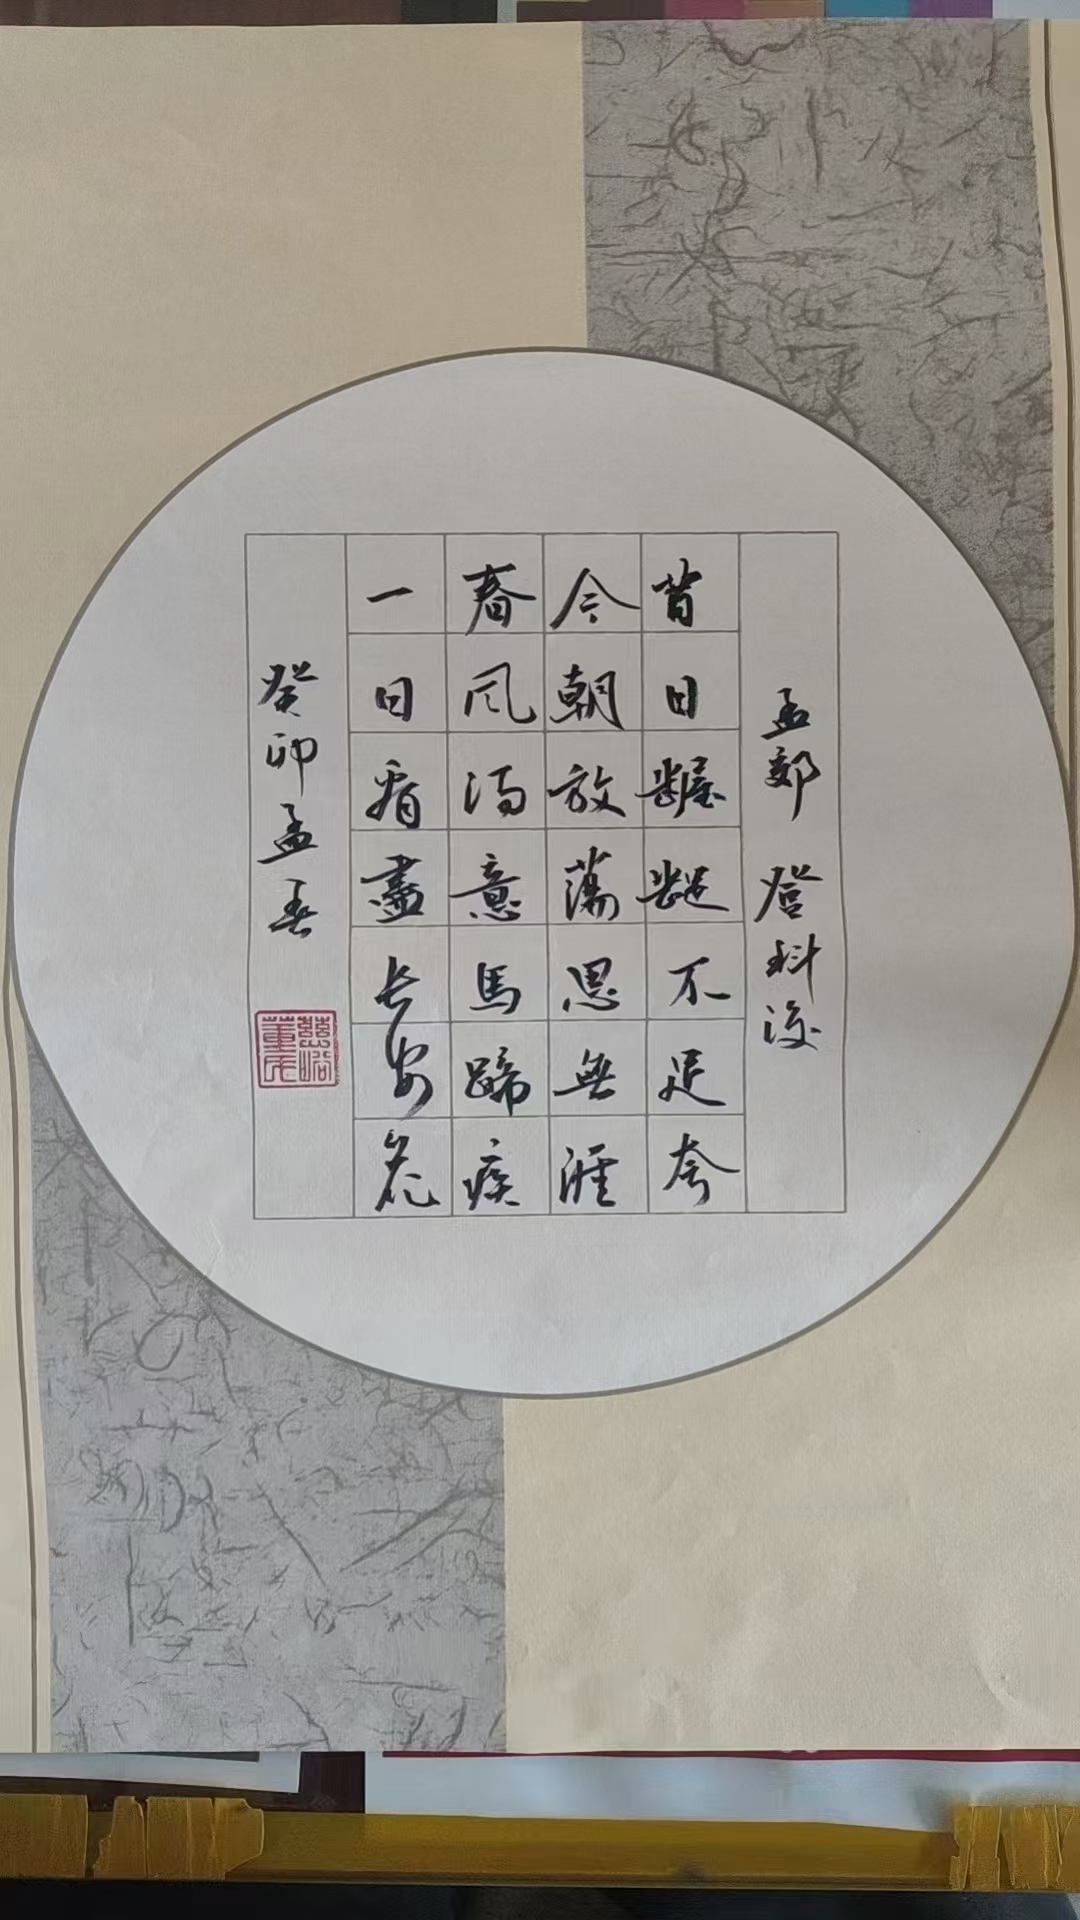 孟郊 登科後
昔日齷齪不足夸
今朝放蕩思無涯
春風得意馬蹄疾
一日看盡長安花
癸卯孟春
慈谿董氏